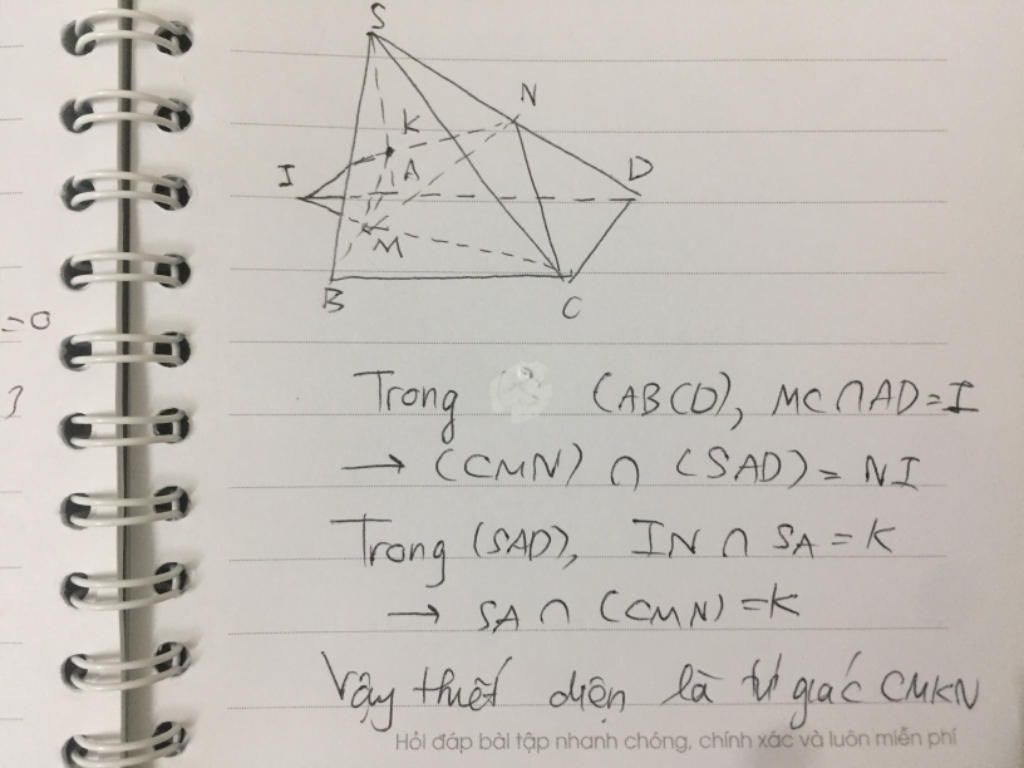 S
N
K
I
A
D
M
B
C
=0
Trong (ABCD), MC∩AD=I
→ (CMN) ∩ (SAD) = NI
Trong (SAD), IN ∩ SA = K
→ SA ∩ (CMN) = K
Vậy thiết diện là tứ giác CMKN
Hỏi đáp bài tập nhanh chóng, chính xác và luôn miễn phí